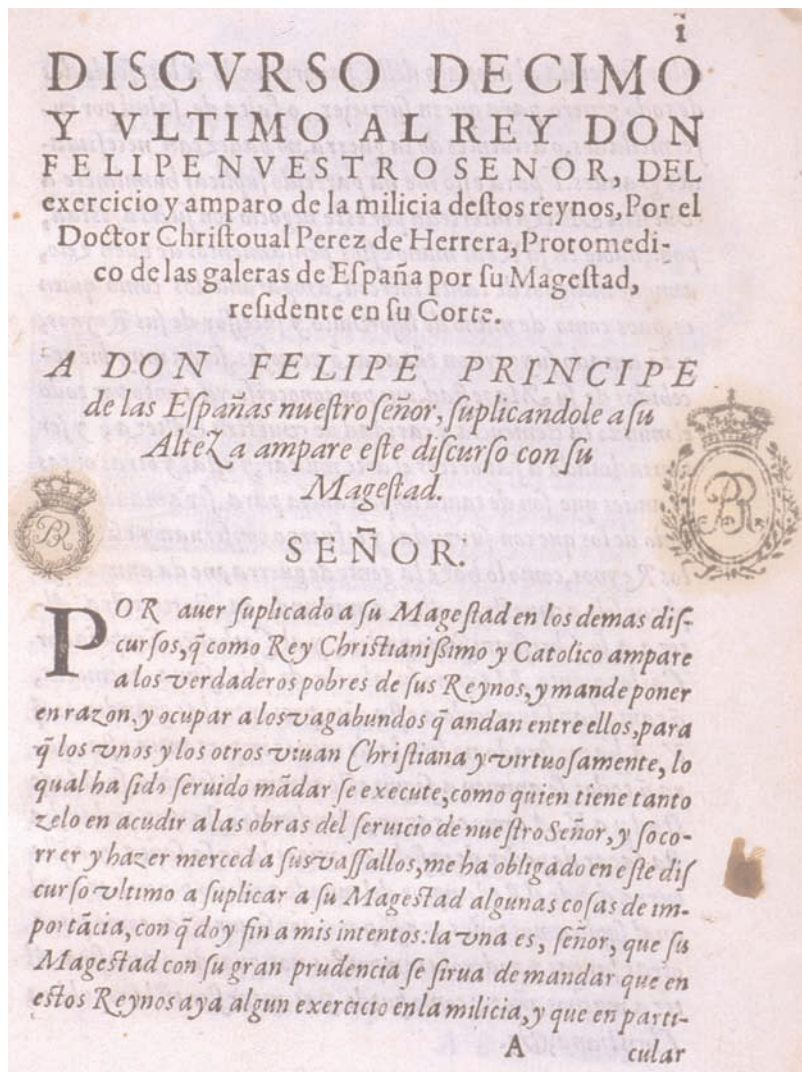 1
DISCVRSO DECIMO
Y VLTIMO AL REY DON
FELIPE NVESTRO SENOR, DEL
exercicio y amparo de la milicia destos reynos, Por el
Doctor Christoual Perez de Herrera, Protomedi-
co de las galeras de España por su Magestad,
residente en su Corte.
A DON FELIPE PRINCIPE
de las Españas nuestro señor, suplicandole a su
Alteza ampare este discurso con su
Magestad.
SEÑOR.
POR auer suplicado a su Magestad en los demas dis-
cursos, q̃ como Rey Christianissimo y Catolico ampare
a los verdaderos pobres de sus Reynos, y mande poner
en razon, y ocupar a los vagabundos q̃ andan entre ellos, para
q̃ los vnos y los otros viuan Christiana y virtuosamente, lo
qual ha sido seruido mãdar se execute, como quien tiene tanto
zelo en acudir a las obras del seruicio de nuestro Señor, y soco-
rrer y hazer merced a sus vassallos, me ha obligado en este dis
curso vltimo a suplicar a su Magestad algunas cosas de im-
portãcia, con q̃ doy fin a mis intentos: la vna es, señor, que su
Magestad con su gran prudencia se sirua de mandar que en
estos Reynos aya algun exercicio en la milicia, y que en parti-
A cular
BR
BR